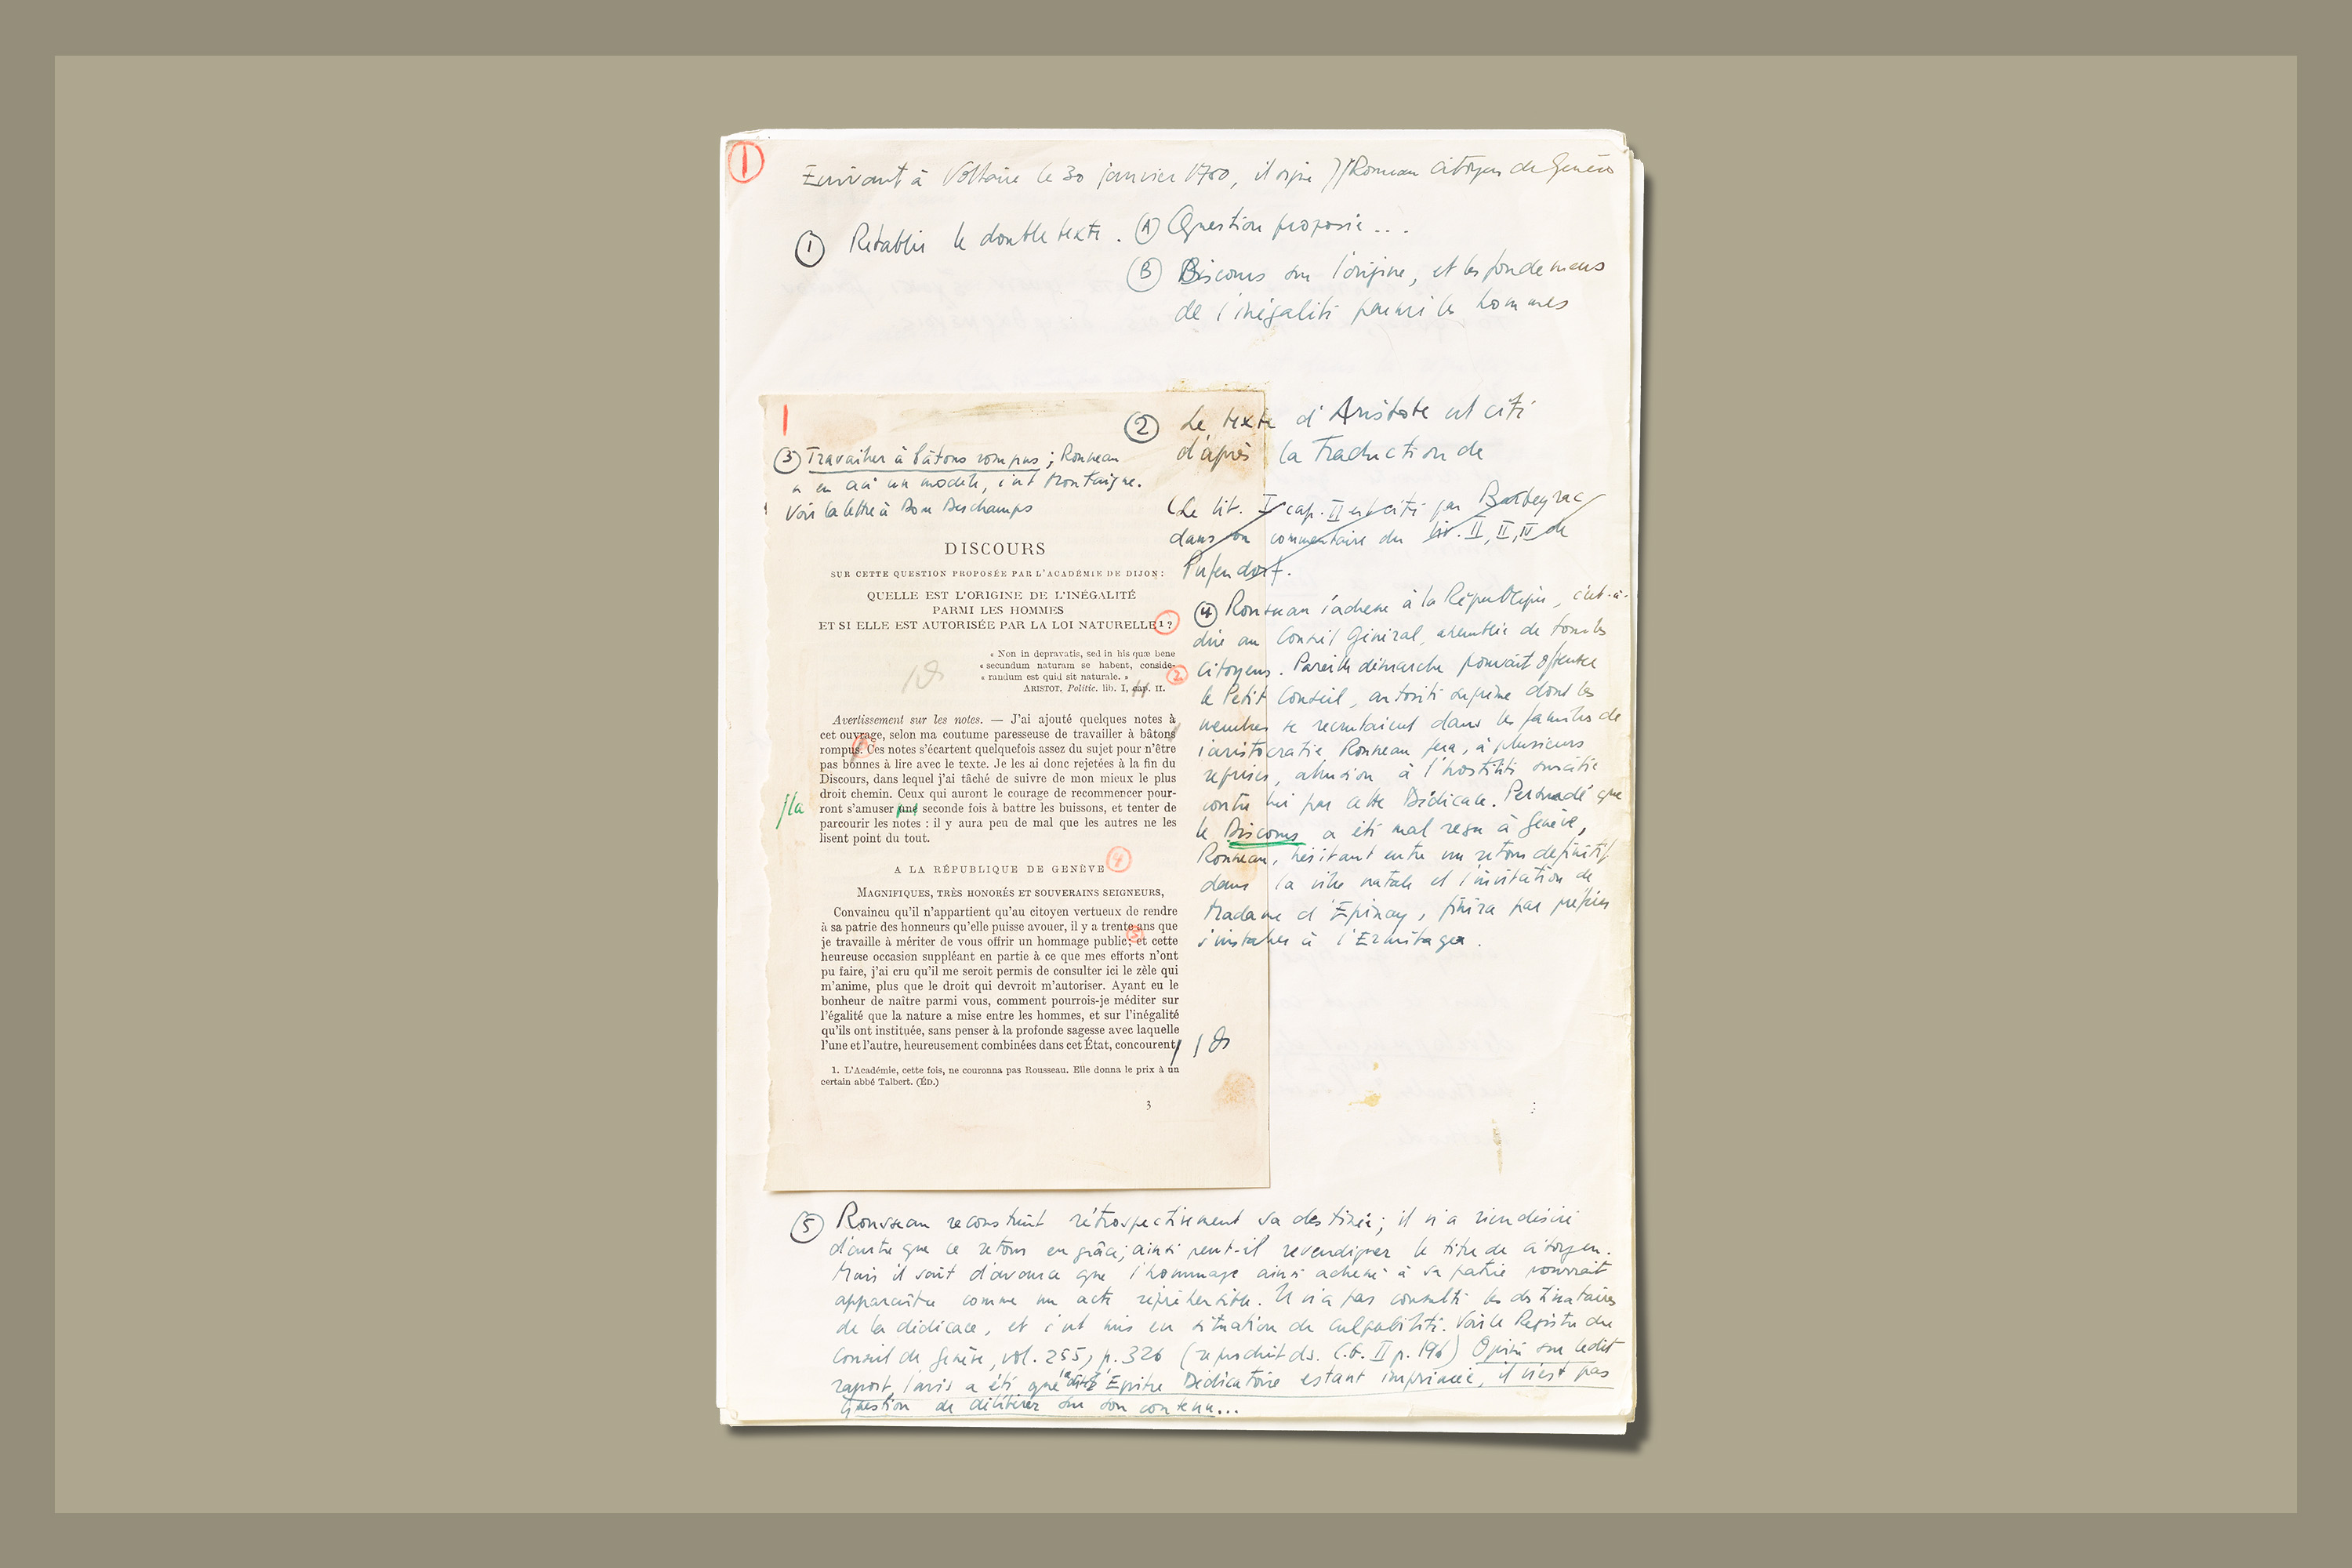 1
Ecrivant à Voltaire le 30 janvier 1750, il signe JJ Rousseau citoyen de Genève
1 Rétablir le double texte. A Question proposée...
B Discours sur l'origine, et les fondemens
de l'inégalité parmi les hommes
2 Le texte d'Aristote est cité
d'après la Traduction de
(Le lib. I cap. II est cité par Barbeyrac
dans son commentaire du liv. II, II, IV de
Pufendorf.
1
3 Travailler à bâtons rompus ; Rousseau
a eu un modèle, c'est Montaigne.
Voir la lettre à Dom Deschamps
DISCOURS
SUR CETTE QUESTION PROPOSÉE PAR L'ACADÉMIE DE DIJON:
QUELLE EST L'ORIGINE DE L'INÉGALITÉ
PARMI LES HOMMES
ET SI ELLE EST AUTORISÉE PAR LA LOI NATURELLE 1 ?
« Non in depravatis, sed in his quæ bene
« secundum naturam se habent, conside-
« randum est quid sit naturale. »
2
ARISTOT, Politic. lib. I, cap. II.
Avertissement sur les notes. — J'ai ajouté quelques notes à
cet ouvrage, selon ma coutume paresseuse de travailler à bâtons
rompus. Ces notes s'écartent quelquefois assez du sujet pour n'être
pas bonnes à lire avec le texte. Je les ai donc rejetées à la fin du
Discours, dans lequel j'ai tâché de suivre de mon mieux le plus
droit chemin. Ceux qui auront le courage de recommencer pour-
ront s'amuser une seconde fois à battre les buissons, et tenter de
/la
parcourir les notes : il y aura peu de mal que les autres ne les
lisent point du tout.
A LA RÉPUBLIQUE DE GENÈVE 4
MAGNIFIQUES, TRÈS HONORÉS ET SOUVERAINS SEIGNEURS,
Convaincu qu'il n'appartient qu'au citoyen vertueux de rendre
à sa patrie des honneurs qu'elle puisse avouer, il y a trente ans que
je travaille à mériter de vous offrir un hommage public; et cette
5
heureuse occasion suppléant en partie à ce que mes efforts n'ont
pu faire, j'ai cru qu'il me seroit permis de consulter ici le zèle qui
m'anime, plus que le droit qui devroit m'autoriser. Ayant eu le
bonheur de naître parmi vous, comment pourrois-je méditer sur
l'égalité que la nature a mise entre les hommes, et sur l'inégalité
qu'ils ont instituée, sans penser à la profonde sagesse avec laquelle
l'une et l'autre, heureusement combinées dans cet État, concourent
1. L'Académie, cette fois, ne couronna pas Rousseau. Elle donna le prix à un
certain abbé Talbert. (ÉD.)
3
4 Rousseau s'adresse à la République, c'est-à-
dire au Conseil Général, assemblée de tous les
citoyens. Pareille démarche pouvait offenser
le Petit Conseil, autorité suprême dont les
membres se recrutaient dans les familles de
l'aristocratie Rousseau fera, à plusieurs
reprises, allusion à l'hostilité suscitée
contre lui par cette Dédicace. Persuadé que
le Discours a été mal reçu à Genève,
Rousseau, hésitant entre un retour définitif
dans la ville natale et l'invitation de
Madame d'Epinay, finira par préférer
s'installer à l'Ermitage.
5 Rousseau reconstruit rétrospectivement sa destinée; il n'a rien désiré
d'autre que ce retour en grâce; ainsi peut-il revendiquer le titre de citoyen.
Mais il sait d'avance que l'hommage ainsi adressé à sa patrie pourrait
apparaître comme un acte répréhensible. Il n'a pas consulté les destinataires
de la dédicace, et s'est mis en situation de culpabilité. Voir le Registre du
Conseil de Genève, vol. 255, p. 326 (reproduit ds. C.G. II p. 196) Opiné sur ledit
raport, l'avis a été que ladite Epitre Dédicatoire estant imprimée, il n'est pas
question de délibérer sur son contenu...